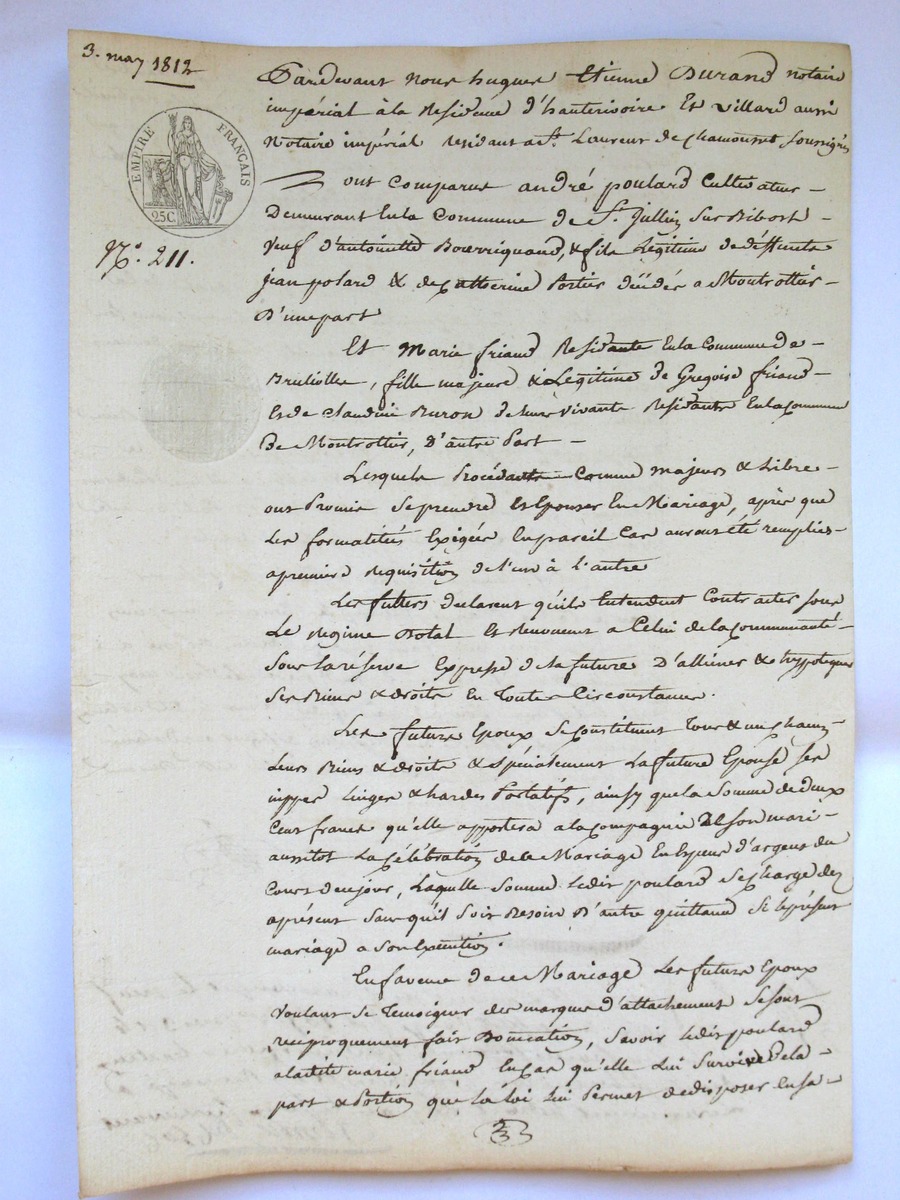 3. may 1812
EMPIRE FRANÇAIS
25C.
N°. 211.
Pardevant Nous hugues Etienne Durand notaire
impérial à la Residence d'hauterivoire Et Villard aussi
Notaire impérial residant a St. Laurent de Chamousset Soussignés
ont Comparus andré poulard Cultivateur
Demeurant En la Commune de St. Jullien Sur Bibost
Veuf d'antoinette Bourriquand, & fils Légitime de deffunts
jean polard & de Catherine Portier décédés a Montrottier
D'une part
Et Marie friand Residante En la Commune de
Brullolles, fille majeure & Légitime de Gregoire friand
Et de Claudine Buron de leur vivante Residants En la Commune
De Montrottier, D'autre Part
Lesquels Procédants Comme majeurs & Libre
ont Promis Se prendre Et Epouser En Mariage, après que
Les formalités Exigées En pareil Cas auront été remplies
a premiere requisition de l'un à l'autre
Les futurs declarent qu'ils Entendent Contracter Sous
Le Regime Dotal Et Renoncent a Celui de la Communauté
Sous la réserve Expresse de la future D'alliéner & hyppotequer
Ses Biens & droits En Toute Circonstance.
Les future Epoux Se Constituent Tous & un Chacun
Leurs Biens & droits & Spécialement La future Epouse Ses
nippes Linges & hardes Portatifs, ainsy que la Somme de deux
Cent francs qu'elle apportera a la Compagnie De Son mari
aussitot La Célébration de le Mariage En Espece d'argent du
Cours de ce jour, Laquelle Somme Ledit poulard Se Charge dez
aprésent Sans qu'il Soit Besoin D'autre quittance Si le présent
mariage a Son Execution.
En faveur de ce Mariage Les future Epoux
Voulant Se Temoigner des marques d'attachement Se font
reciproquement fait Donnation, Savoir Ledit poulard
a ladite marie friand En Cas qu'elle Lui Survive De la
part & Portion que la loi lui Permet de disposer En Sa